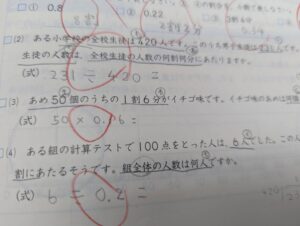 ① 0.8
② 0.22
(2) ある小学校の全校生徒は420人です。このうち男子生徒は231人です。
生徒の人数は、全校生徒の人数の何割何分にあたりますか。
(式) 231 ÷ 420 =
(3) あめ50個のうちの1割6分がイチゴ味です。イチゴ味のあめは何個
(式) 50 × 0.16 =
(4) ある組の計算テストで100点をとった人は、6人でした。この人
割にあたるそうです。組全体の人数は何人ですか。
(式) 6 ÷ 0.2 =